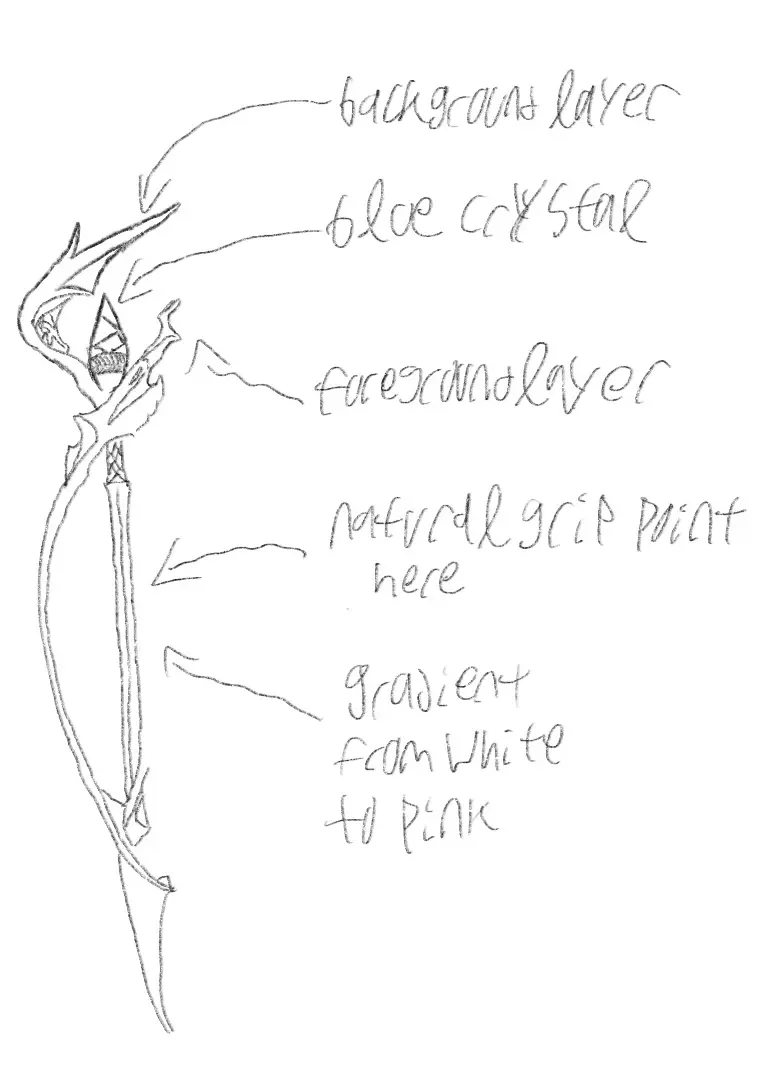 background layer
blue crystal
foreground layer
natural grip point
here
gradient
from white
to pink